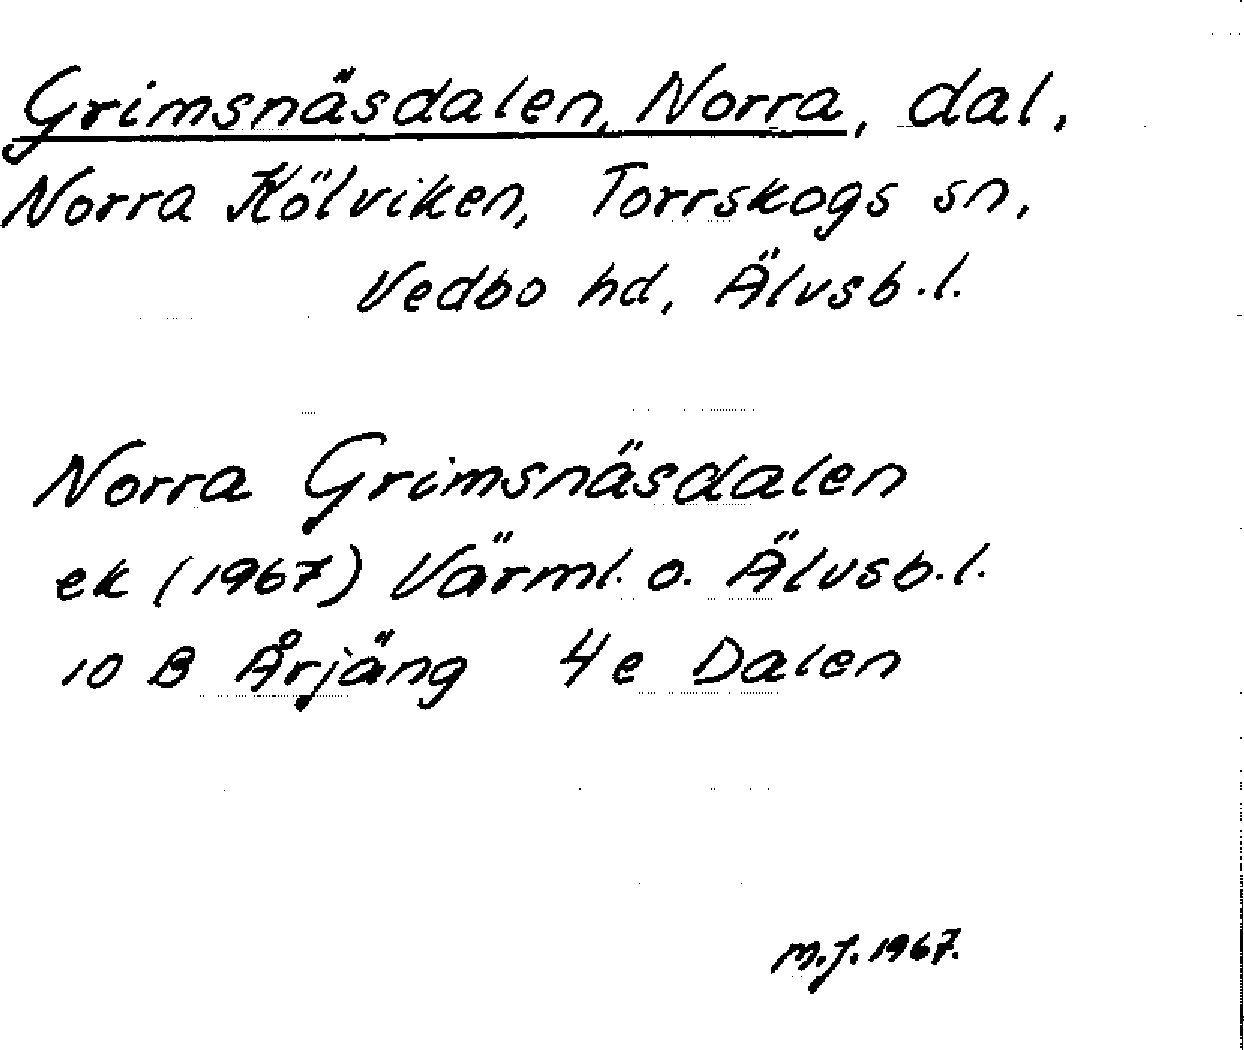 Grimsnäsdalen, Norra, dal,
Norra Kölviken, Torrskogs sn,
Vedbo hd, Älvsb.l.
Norra Grimsnäsdalen
ek (1967) Värml. o. Älvsb.l.
10 B Årjäng 4e Dalen
M.J. 1967.